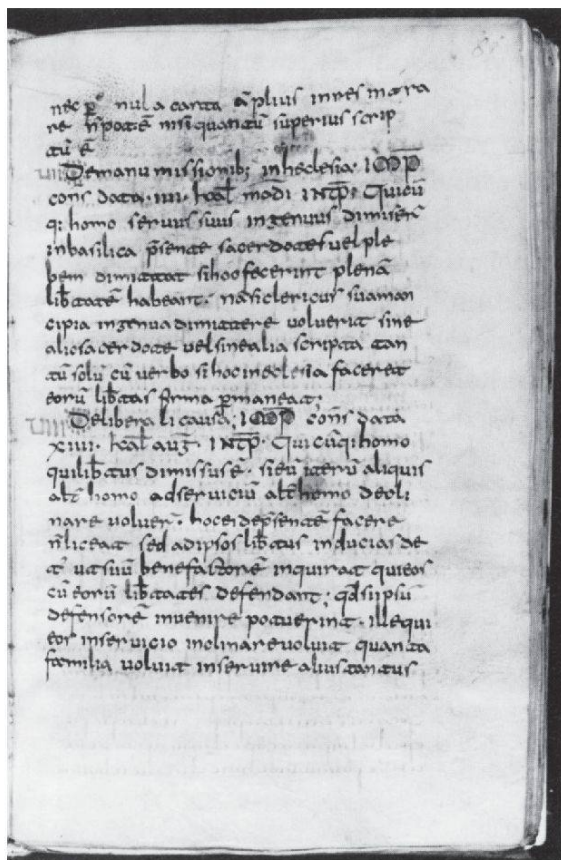 nec p̄ nulla carta āplius inres intra
re n̄ potē nisi quantū superius scrip
tū ē
VIII Demanu missionib; inheclesia. IMP̄
cons̄ data. IIII. kal̄ madi INTP̄. Quicū
q; homo servus suus ingenuus dimiser̄
inbasilica p̄sente sacerdotes vel ple
bem dimittat si hoc fecerint plenā
lib̄tatē habeant. nā si clericus sua man
cipia ingenua dimittere voluerit sine
alio sacerdote vel sine alia scripta tan
tū solū cū verbo si hoc ineclesia faceret
eorū lib̄tas firma p̄maneat;
VIIII Deliberali causa; IMP̄ cons̄ data
XIIII. kal̄ aug̅. INTP̄. Qui cūq; homo
qui lib̄tus dimissus ē. si eū iterū aliquis
alt̄ homo adserviciū alt̄ homo de cli
nare voluer̄. hoc ei dep̄sentē facere
n̄ liceat sed adipsos lib̄tus inducias de
t̄ ut suū benefactorē inquirat qui eos
cū eorū lib̄tates defendant; qd̄ si ipsū
defensorē invenire potuerint. ille qui
eos inservicio inclinare voluit quanta
familia voluit inservire alius tantus